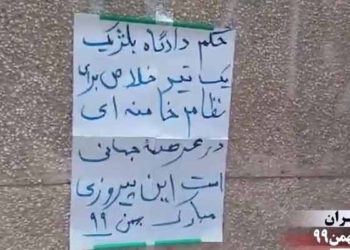 حکم دادگاه بلژیک
یک تیر خلاص برای
نظام خامنه ای
در عرصه جهانی
است این پیروزی
مبارک بهمن ۹۹
ران
همن ۹۹